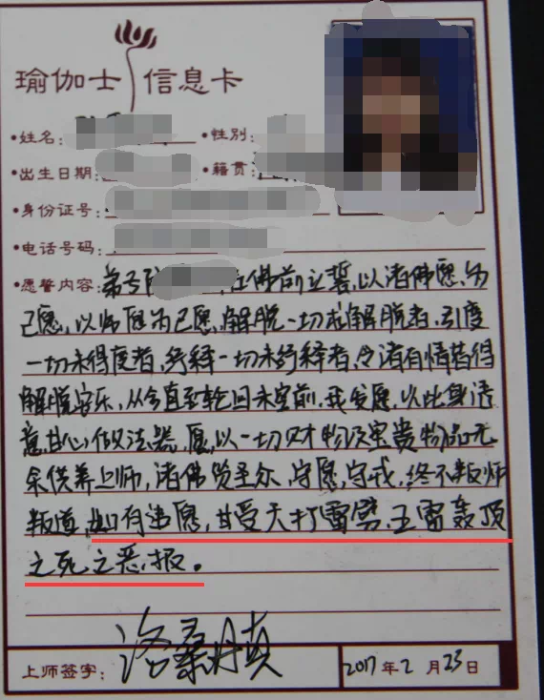 瑜伽士 信息卡
•姓名: •性别:
•出生日期: •籍贯:
•身份证号:
•电话号码:
•愿誓内容: 弟子 在佛前立誓,以诸佛愿为
己愿,以师愿为己愿,解脱一切未解脱者,引度
一切未得度者,舒释一切未舒释者,令诸有情皆得
解脱安乐,从今直至轮回未空前,我发愿,以此身语
意甘心做法器,愿以一切财物及宝贵物品无
余供养上师,诸佛 圣尔,守愿,守戒,终不叛师
叛道,如有违愿,甘受天打雷劈,五雷轰顶
之死之恶报。
上师签字: 洛桑丹真 2017年2月23日